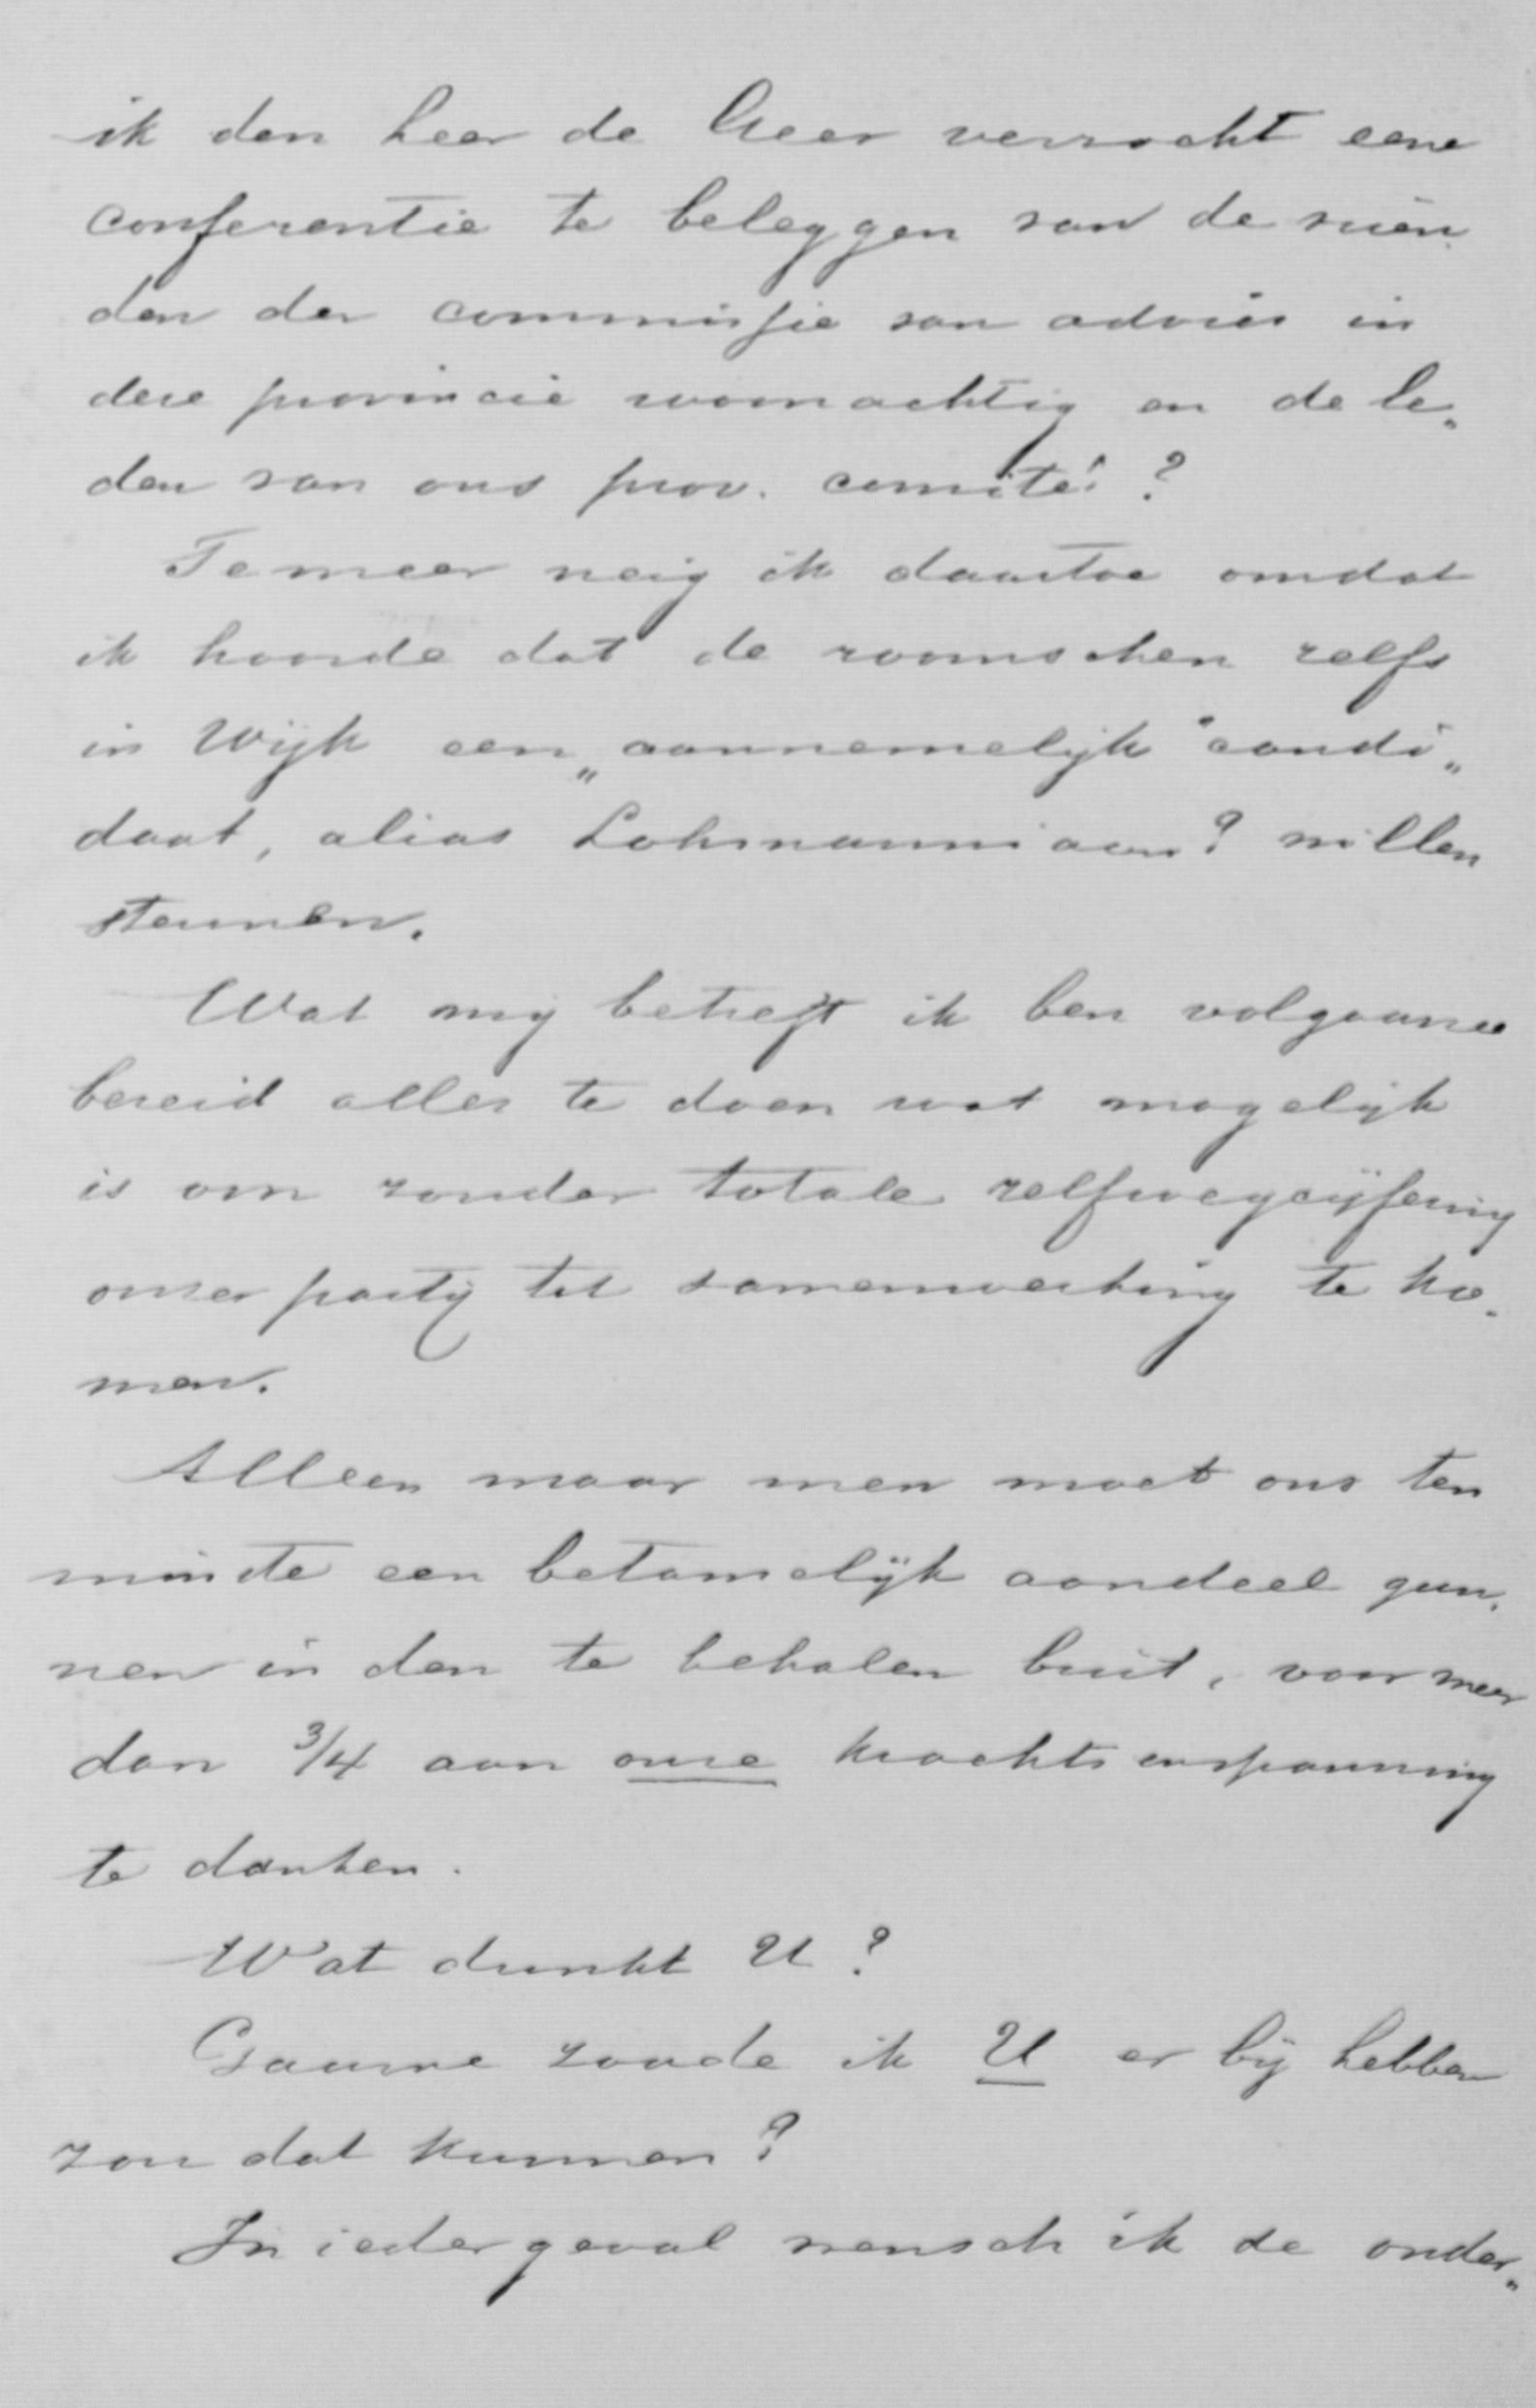 ik den heer de Geer verzocht eene
conferentie te beleggen van de vrien-
den der commissie van advies in
deze provincie woonachtig en de le„
den van ons prov. comité?
Te meer neig ik daartoe omdat
ik hoorde dat de roomschen zelfs
in Wijk een „aannemelijk" candi„
daat, alias Lohmanniaan? willen
steunen.
Wat mij betreft ik ben volgaarne
bereid alles te doen wat mogelijk
is om zonder totale zelfwegcijfering
onzer partij tot samenwerking te ko-
men.
Alleen maar men moet ons ten
minste een betamelijk aandeel gun-
nen in den te behalen buit, voor meer
dan 3/4 aan onze krachtsinspanning
te danken.
Wat dunkt U?
Gaarne zoude ik U er bij hebben
zou dat kunnen?
In ieder geval wensch ik de onder„